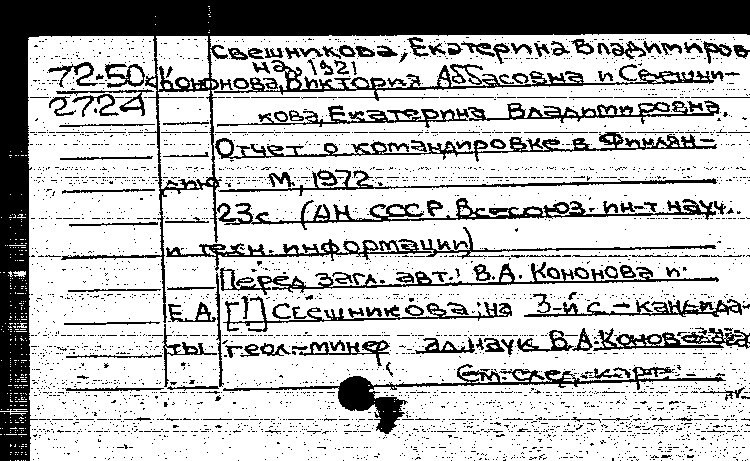 Свешникова, Екатерина Владимиров-
на, 1921
72-50 Кононова, Виктория Аббасовна и Свешни-
2724 кова, Екатерина Владимировна.
Отчет о командировке в Финлян-
дию. М., 1972.
23с. (АН СССР. Всесоюз. ин-т науч.
и техн. информации)
Перед загл. авт.: В.А. Кононова и
Е.А. [!] Свешникова; на 3-й с. - кандида-
ты геол.-минер наук В.А.
См. след. карт.